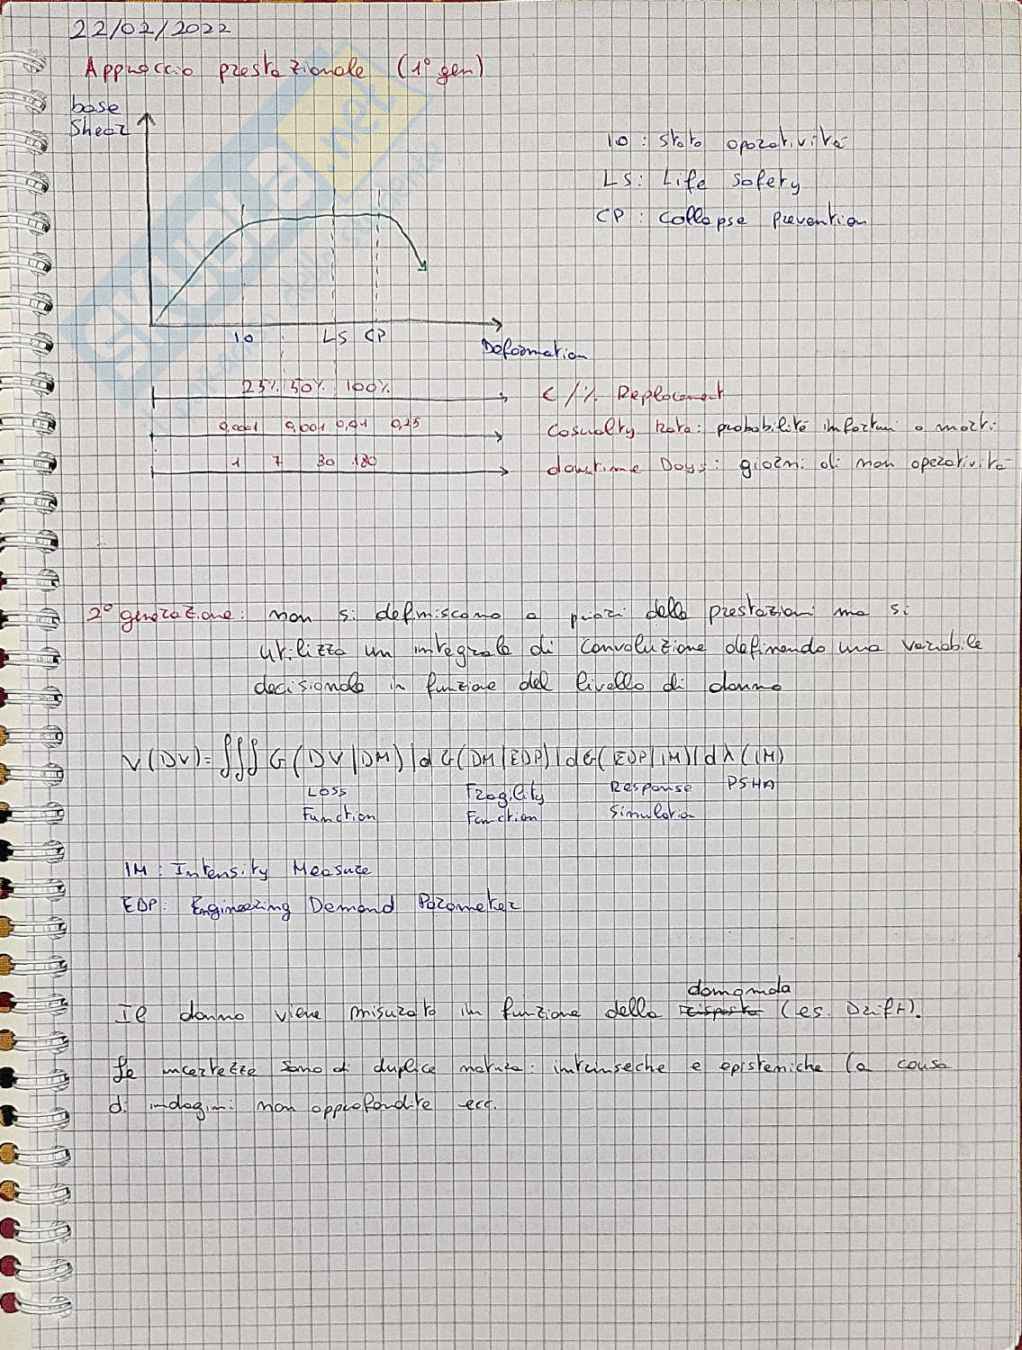 22/02/2022
Approccio prestazionale (1° gen)
base
Shear
IO : stato operatività
LS : Life safety
CP : Collapse prevention
IO LS CP
Deformation
25% 50% 100%
€ / % Replacement
0,0001 0,001 0,01 0,25
Casualty Rate : probabilità infortuni o morti
1 7 30 180
downtime Days : giorni di non operatività
2° generazione : non si definiscono a priori delle prestazioni ma si
utilizza un integrale di convoluzione definendo una variabile
decisionale in funzione del livello di danno
V(DV) = ∭ G(DV|DM)|dG(DM|EDP)|dG(EDP|IM)|dλ(IM)
Loss Fragility Response PSHA
Function Function Simulation
IM : Intensity Measure
EDP : Engineering Demand Parameter
domanda
Il danno viene misurato in funzione della risposta (es. Drift).
Le incertezze sono di duplice natura : intrinseche e epistemiche (a causa
di indagini non approfondite ecc.
SKUOLA.net